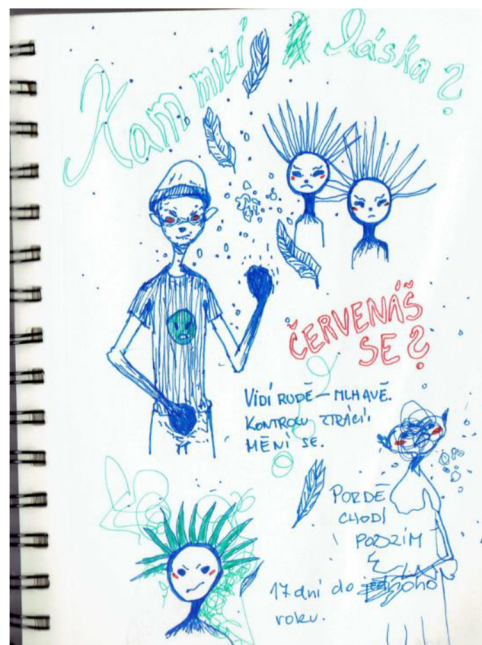 Kam mizí láska?
ČERVENÁŠ
SE?
VIDÍ RUDĚ – MLHAVĚ.
KONTROLU ZTRÁCÍ,
MĚNÍ SE.
CHODÍ
PODZIM
17 dní do
roku.